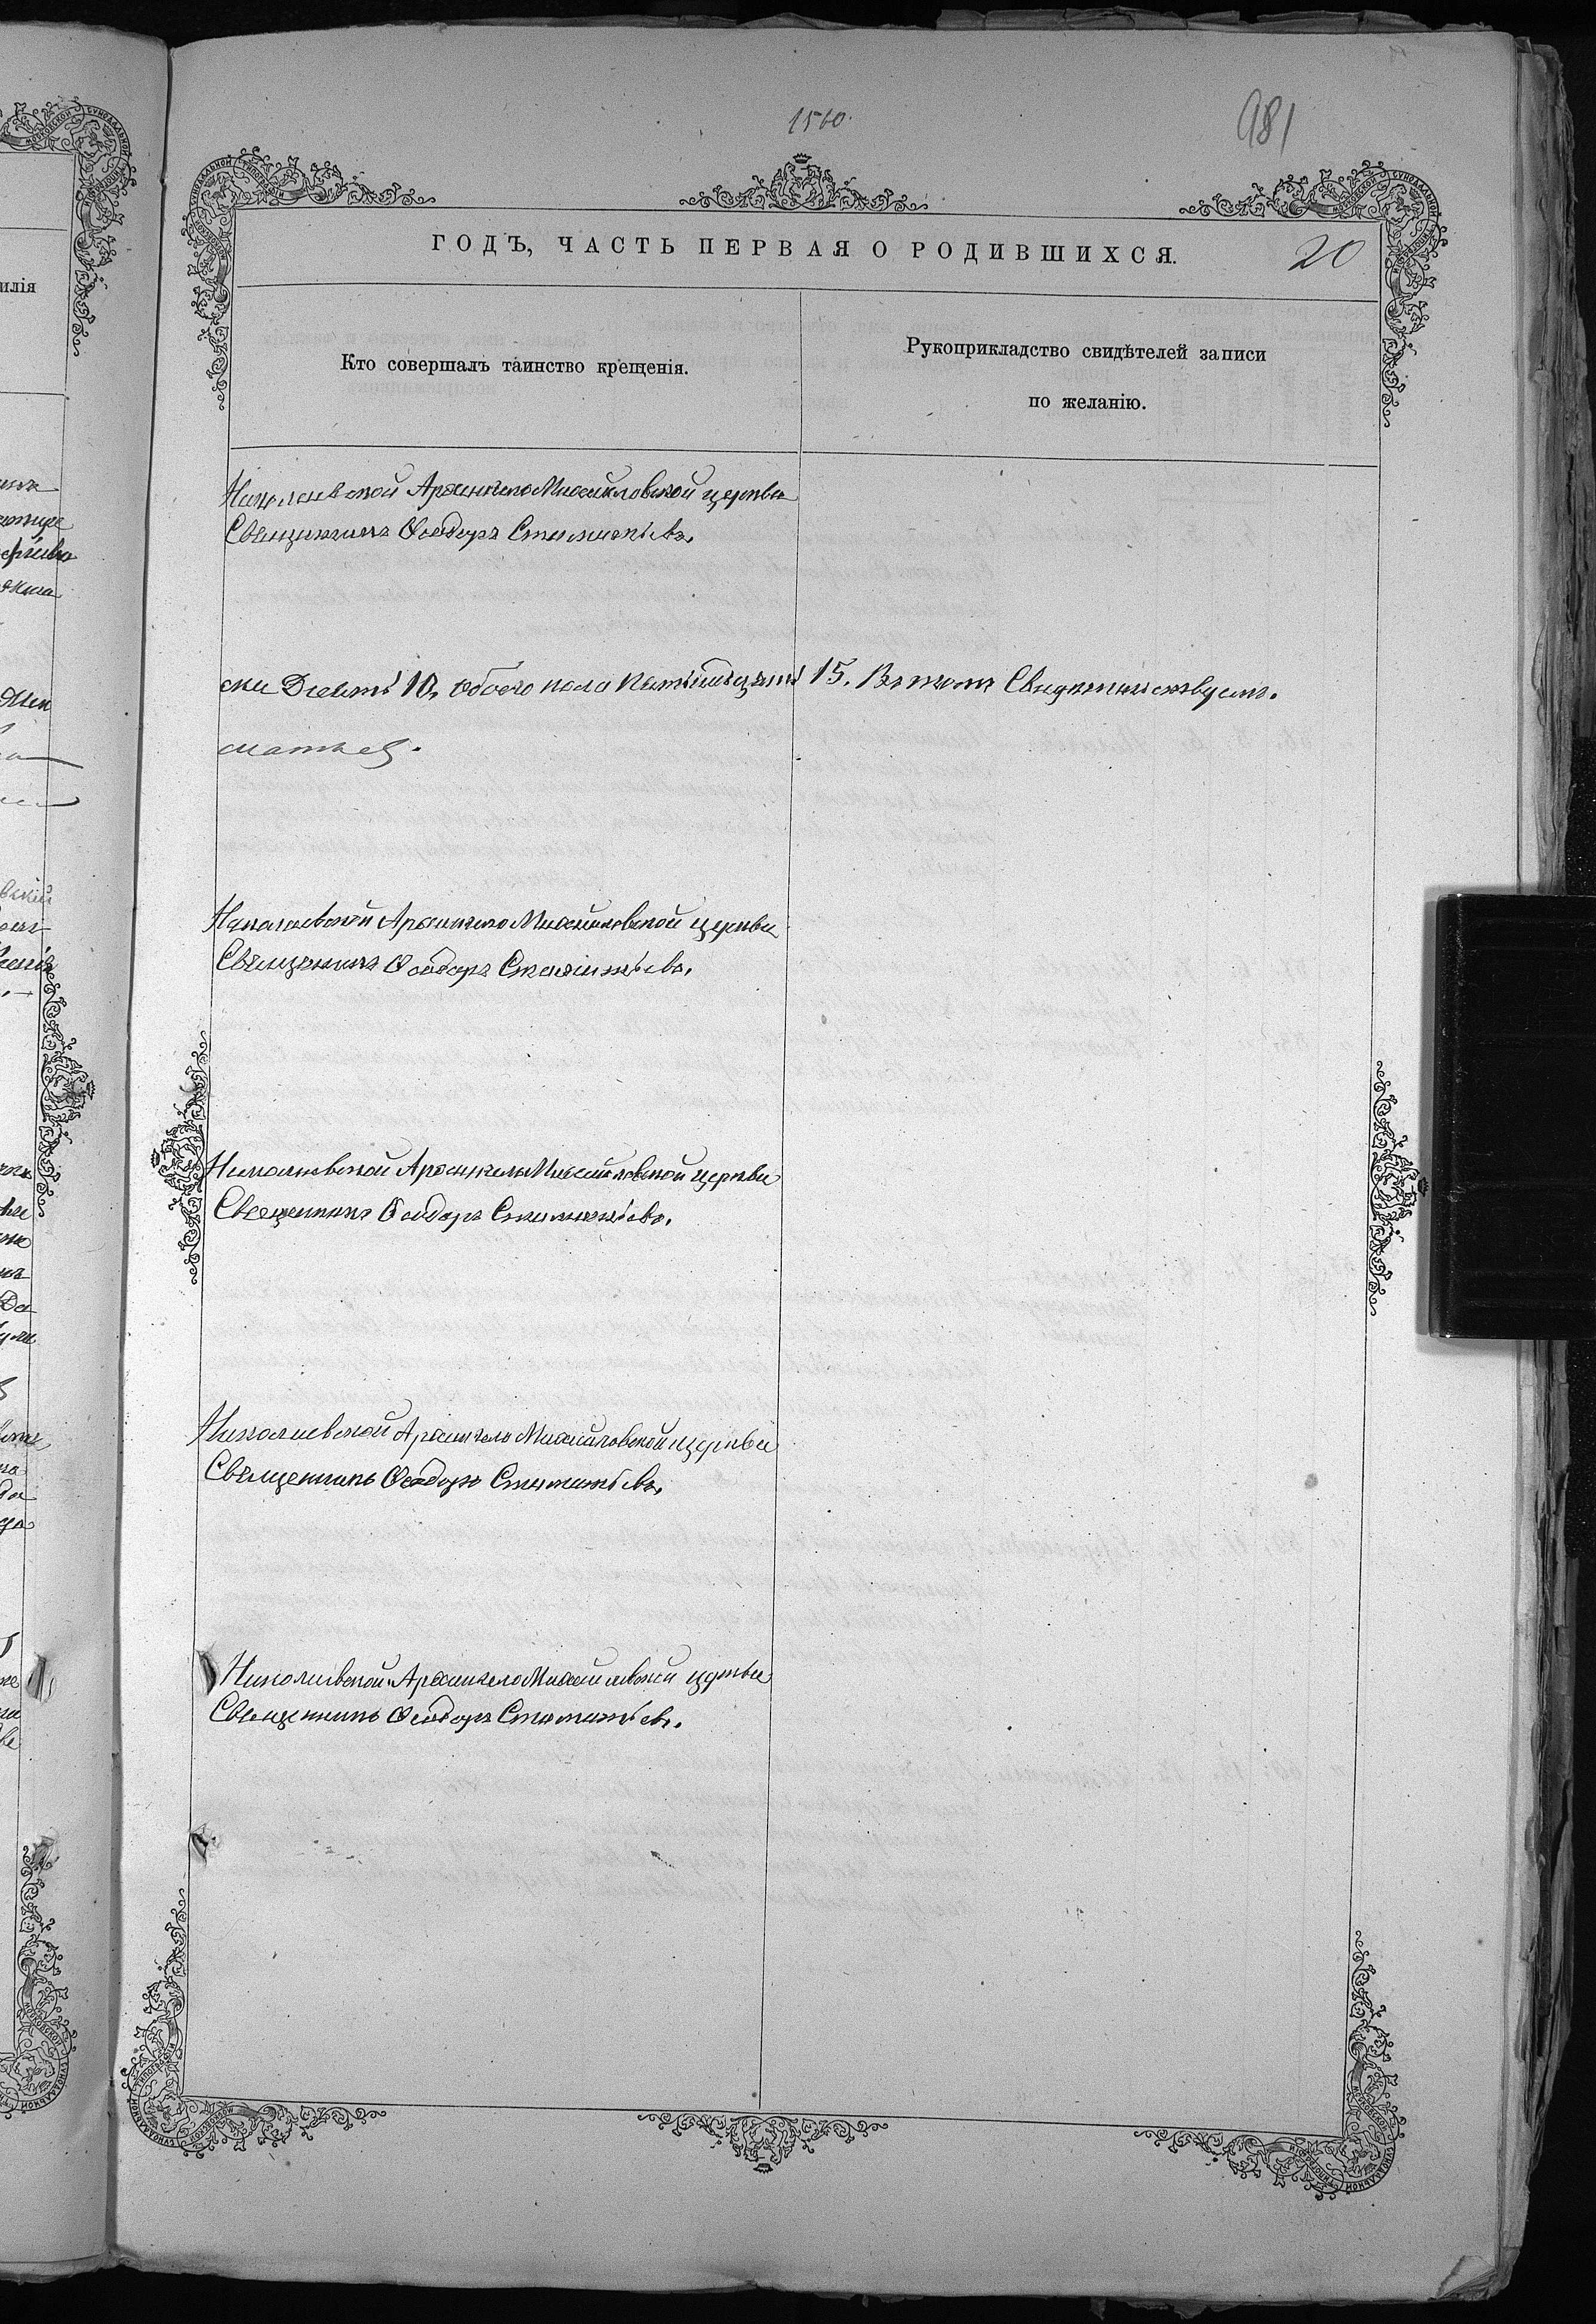 1560.
981
ГОДЪ, ЧАСТЬ ПЕРВАЯ О РОДИВШИХСЯ.
20
Кто совершалъ таинство крещенія.
Рукоприкладство свидѣтелей записи
по желанію.
Николаевской Архангело Михайловской церкви
Священникъ Ѳеодоръ Стаматьевъ.
ски 10, обоего пола 15. Въ томъ Свидетельствуемъ.
матьев.
Николаевской Архангело Михайловской церкви
Священникъ Ѳеодоръ Стаматьевъ.
Николаевской Архангело Михайловской церкви
Священникъ Ѳеодоръ Стаматьевъ.
Николаевской Архангело Михайловской церкви
Священникъ Ѳеодоръ Стаматьевъ.
Николаевской Архангело Михайловской церкви
Священникъ Ѳеодоръ Стаматьевъ.